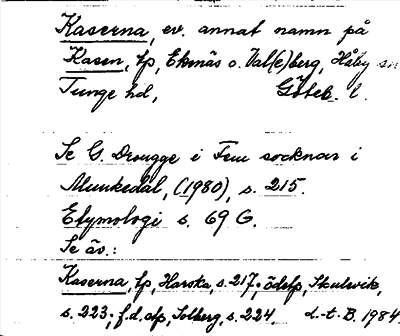 Kaserna, ev. annat namn på
Kasen, tp, Ekenäs o. Val(e)berg, Håby sn
Tunge hd, Göteb. l.
Se G. Drougge i Fem socknar i
Munkedal, (1980), s. 215.
Etymologi s. 69 G.
Se äv.:
Kaserna, tp, Harska, s. 217; ödetp, Skulevik,
s. 223; f.d. atp, Solberg, s. 224. L-t. B. 1984